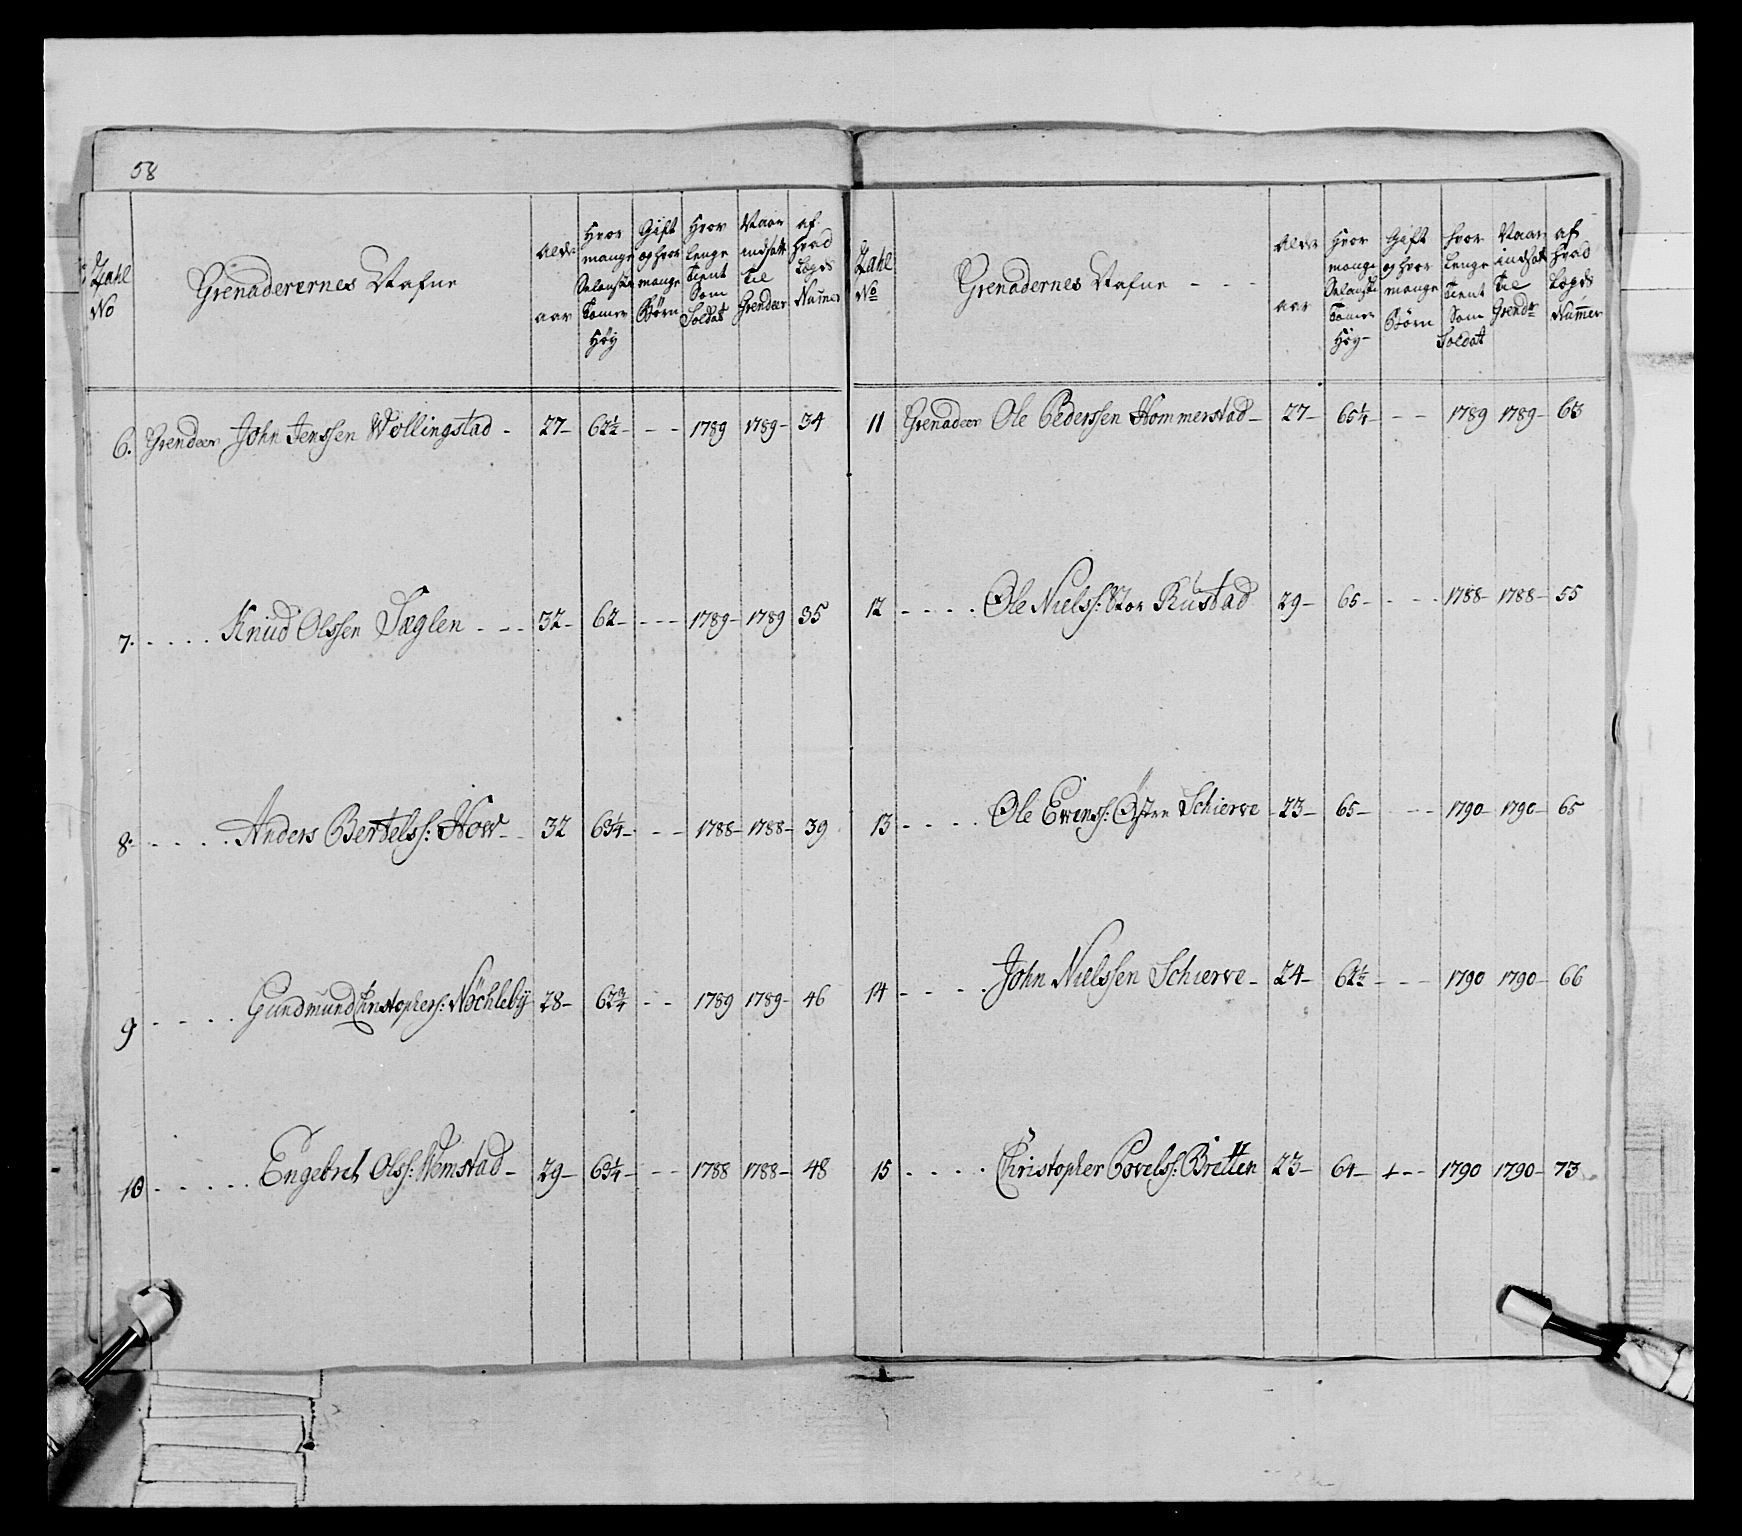 58
Tahl No
Grenaderernes Nafne
Alder aar
Hvor mange Selandske Tomer Høy
Gift og hvor mange Børn
Hvor lenge Tient Som Soldat
Naar indsatt Til Grendeer
af hvad Legds Numer
6. Grendeer John Jenssen Wollingstad - 27- 62½- - - 1789 1789- 34
7. - - - - Knud Olssen Sæglen - - - 32- 62- - - - 1789- 1789 35
8- - - - - - Anders Bertelss: How- - 32 63¼- - - 1788- 1788- 39
9 - - - - Gundmund Christophers: Nöchlebÿ 28- 62¾ - - 1789 1789- 46
10 - - - - - Engebret Olss: Hemstad- 29- 63¼- - - 1788 1788- 48
Tahl No
Grenadernes Nafne - - -
Alder aar
Hvor mange Selanske Tomer Høy-
Gift og hvor mange Børn
hvor lenge Tient Som Soldat
Naar indsatt Til Grendr
af hvad Legds Numer
11 Grenadeer Ole Pederssen Hommerstad- 27- 65¼- - - 1789 1789- 63
12 - - - - Ole Nielss: Stor Rustad 29- 65- - - - 1788- 1788- 55
13 - - - - Ole Ewenss: Østre Schierve 23- 65- - - - 1790 1790- 65
14 - - - - John Nielssen Schierve- 24- 62½- - - - 1790 1790- 66
15 - - - - Christopher Povelss: Bretten 23- 64- +- - 1790 1790- 73